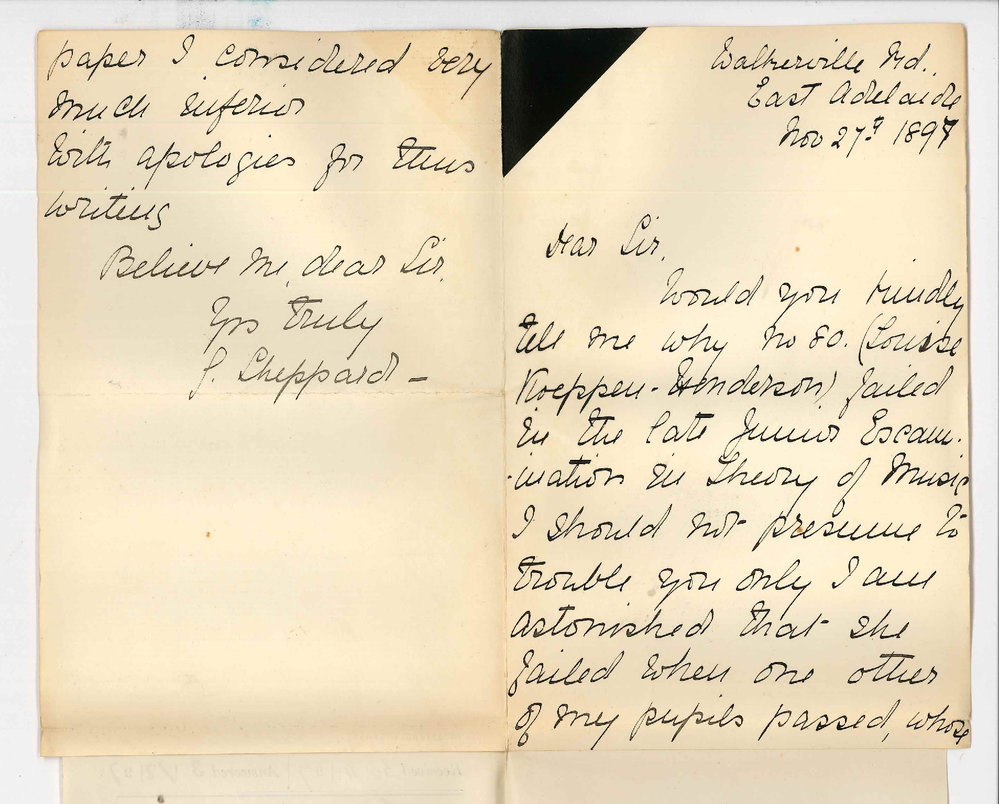 Walkerville Rd.,
East Adelaide
Nov 27th 1897
Dear Sir,
Would you kindly
tell me why No 80. (Louise
Koeppen-Henderson) failed
in the late Junior Exam-
-ination in Theory of Music
I should not presume to
trouble you only I am
astonished that she
failed when one other
of my pupils passed, whose
paper I considered very
much inferior
With apologies for thus
writing
Believe me, dear Sir,
Yrs truly
J. Sheppard -